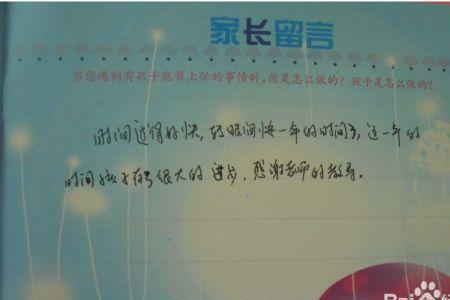 家长留言
当您遇到有孩子能帮上忙的事情时,您是怎么做的?孩子是怎么做的?
时间过得好快,转眼间快一年的时间了,这一年的
时间孩子有很大的进步,感谢老师的教导。
Bai